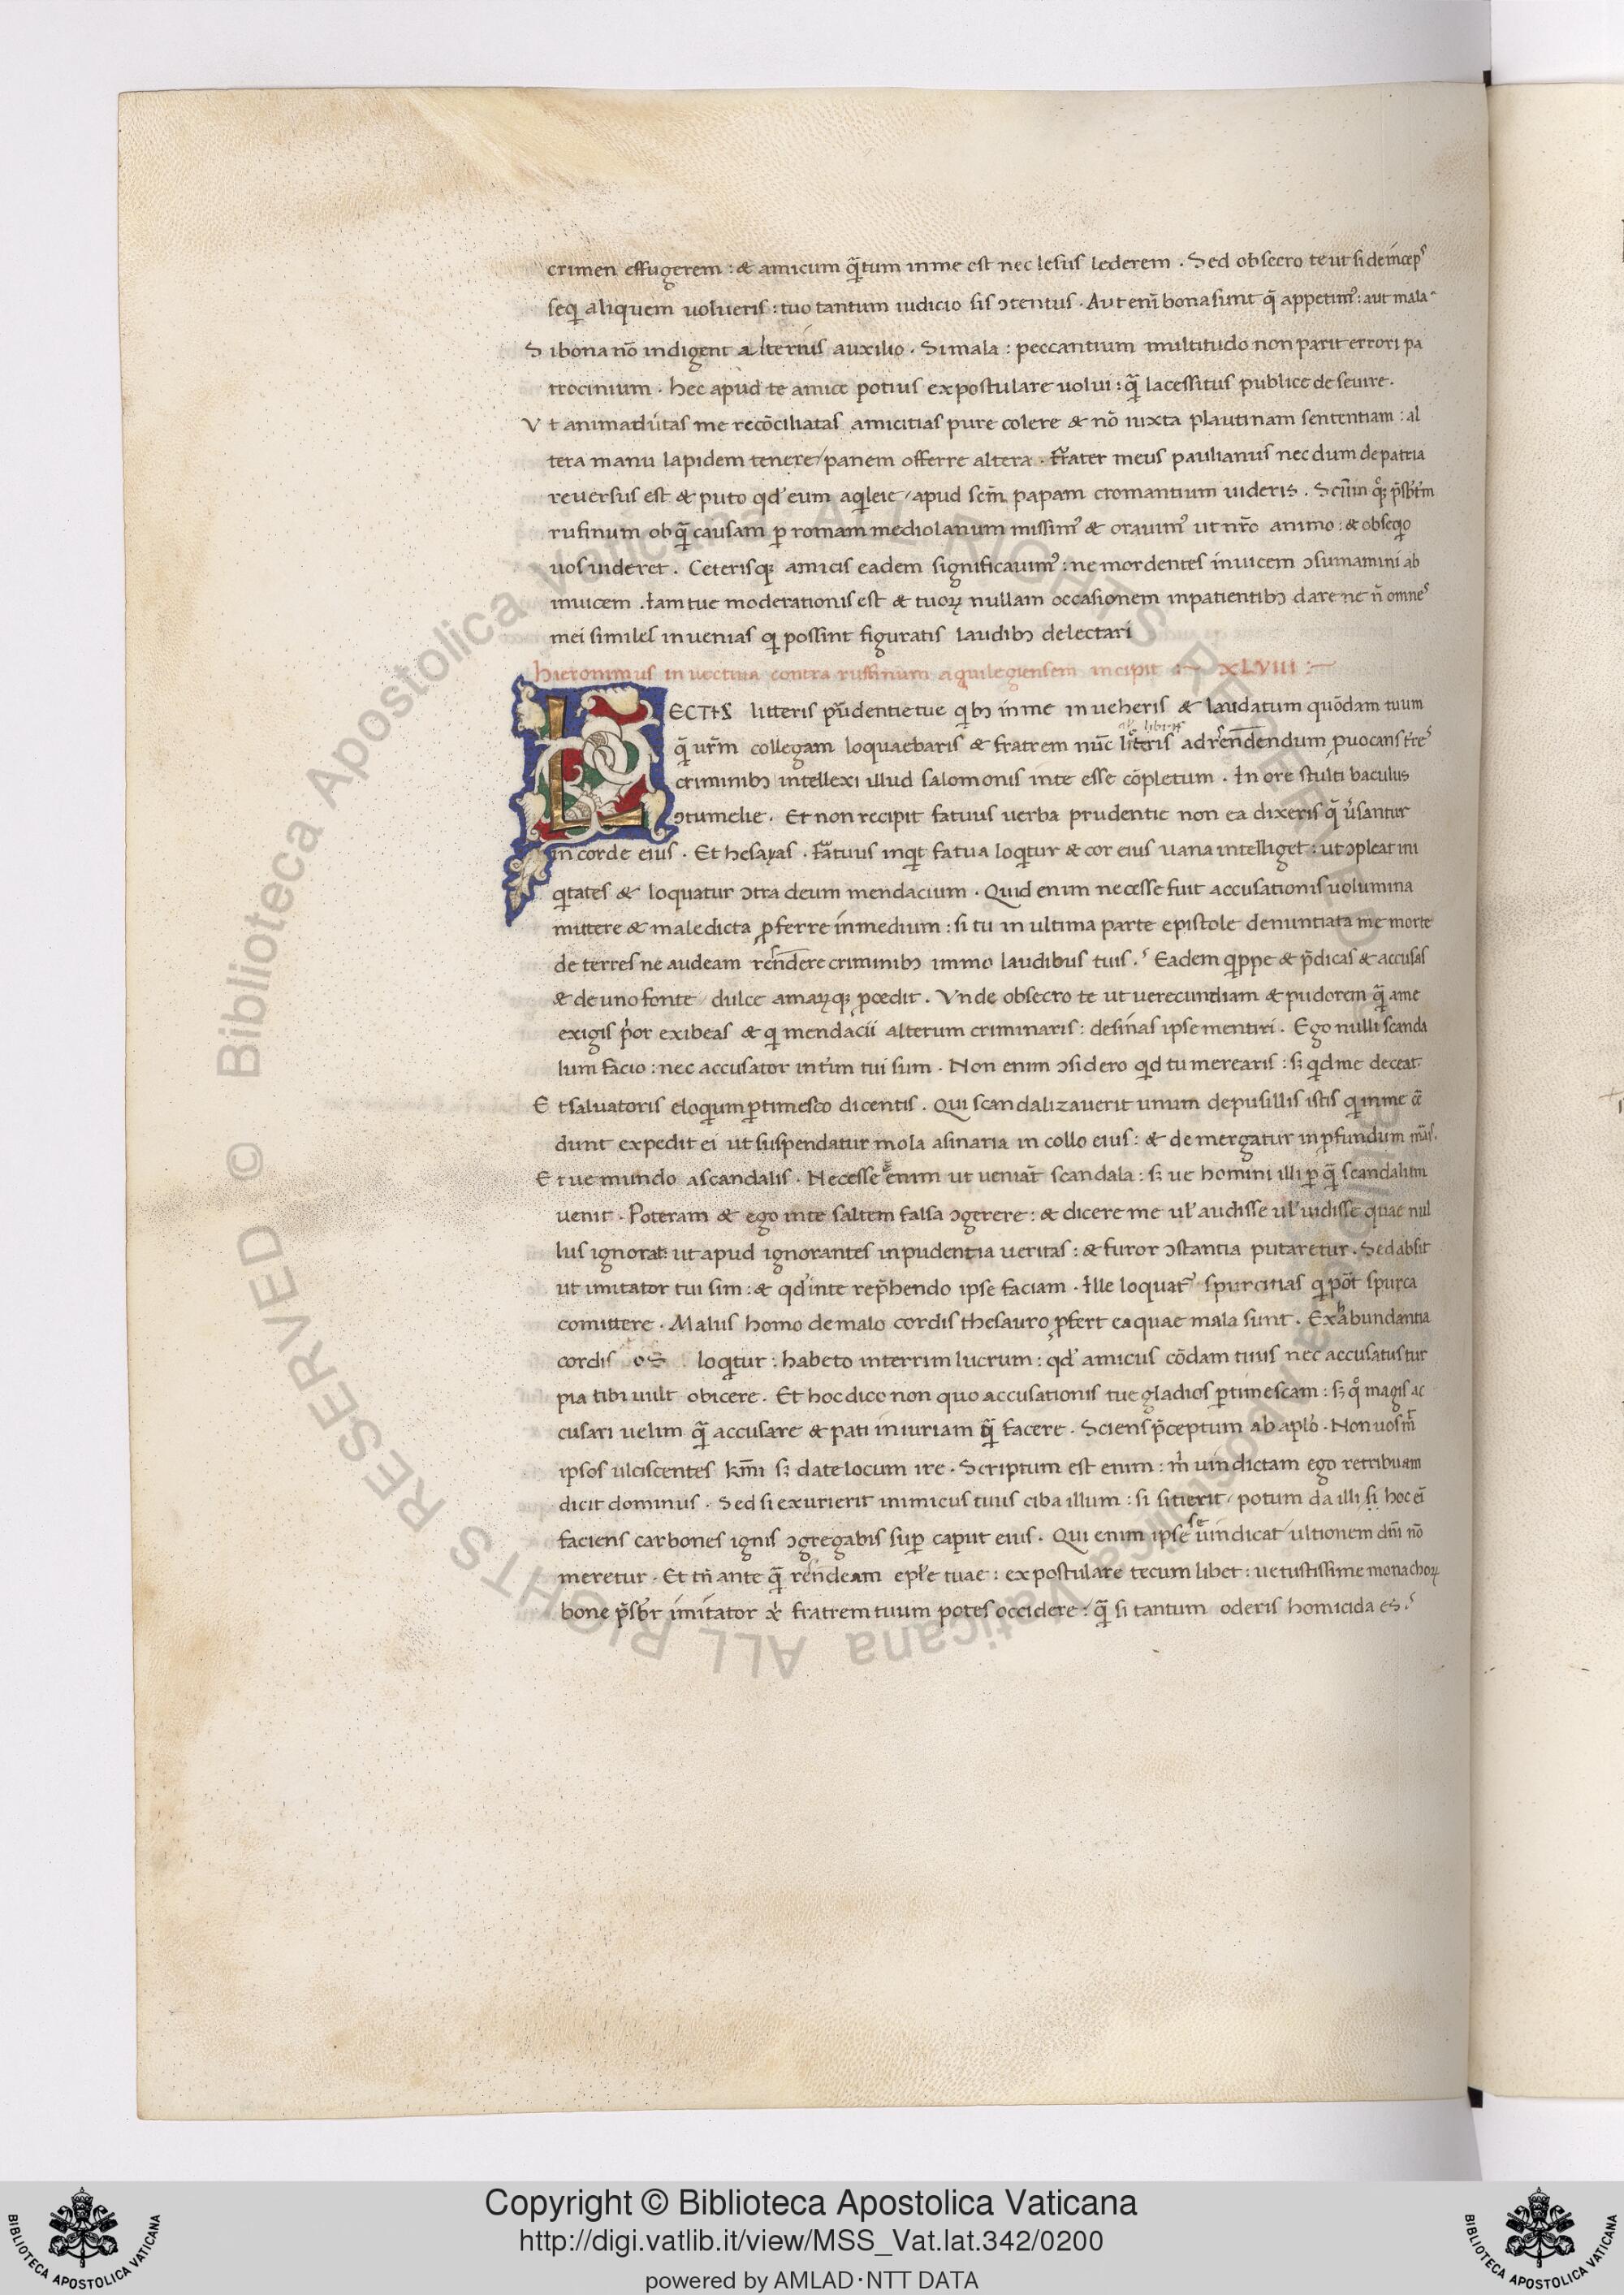 crimen effugerem : & amicum q̃tum inme est nec lesus lederem . Sed obsecro te ut si deincepˢ
seq̇ aliquem uolueris : tuo tantum iudicio sis ↄtentus . Aut eni᷑ bona sunt q̃ appetimꝰ : aut mala
Si bona nō indigent alterius auxilio . Si mala : peccantium multitudo non parit errori pa
trocinium . hec apud te amice potius expostulare uolui : q̃ lacessitus publice deseuire .
Vt animadútas me recōciliatas amicitias pure colere & nō iuxta plautinam sententiam : al
tera manu lapidem tenere / panem offerre altera . Frater meus paulianus nec dum de patria
reuersus est & puto qd' eum aq̇leie / apud scm̄ papam cromantium uideris . Scūm qꝫ p̄sbr̄m
rufinum ob q̃ causam ꝑ romam mediolanum missimꝰ & orauimꝰ ut nr̄o animo : & obseq̇o
uos uideret . Ceterisqꝫ amicis eadem significauimꝰ : ne mordentes inuicem ↄsumamini ab
inuicem . Iam tue moderationis est & tuoꝝ nullam occasionem inpatientibꝫ dare ne n̄ omneˢ
mei similes inuenias q̇ possint figuratis laudibꝫ delectari
Hieronimus in uectiua contra ruffinum aquilegiensem incipit :~ XLVIII :~
LECTIS litteris pr̄udentie tue q̇bꝫ inme inueheris & laudatum quōdam tuum
q̃ ur̄m collegam loquaebaris & fratrem nūc literis ad rn̄dendum ꝓuocans t̄reˢ
criminibꝫ intellexi illud salomonis inte esse cōpletum . In ore stulti baculus
ↄtumelie . Et non recipit fatuus uerba prudentie non ea dixeris q̃ úsantur
in corde eius . Et hesayas . Fatuus inq̇t fatua loq̇tur & cor eius uana intelliget : ut ↄpleat ini
q̇tates & loquatur ↄtra deum mendacium . Quid enim necesse fuit accusationis uolumina
mittere & maledicta ꝓferre inmedium : si tu in ultima parte epistole denuntiata me morte
de terres ne audeam rn̄dere criminibꝫ immo laudibus tuis . Eadem q̇ppe & p̄dicas & accusas
& de uno fonte / dulce amaꝝqꝫ ꝓcedit . Vnde obsecro te ut uerecundiam & pudorem q̃ ame
exigis pˈor exibeas & q̇ mendacii alterum criminaris : desinas ipse mentiri . Ego nulli scanda
lum facio : nec accusator int̄im tui sum . Non enim ↄsidero q̇d tu merearis : sꝫ q̇d me deceat
Et saluatoris eloq̇um ꝑtimesco dicentis . Qui scandalizauerit unum de pusillis istis q̇ inme cr̄e
dunt expedit ei ut suspendatur mola asinaria in collo eius : & demergatur in ꝓfundum mar̄is .
Et ue mundo ascandalis . Necesse enim ut ueniāt scandala : sꝫ ue homini illi ꝑ q̃ scandalum
uenit . Poteram & ego inte saltem falsa ↄgerere : & dicere me ul' audisse ul' uidisse quae nul
lus ignorat : ut apud ignorantes inpudentia ueritas : & furor ↄstantia putaretur . Sed absit
ut imitator tui sim : & qd' inte rep̄hendo ipse faciam . Ille loquatᷣ spurcitias q̇ pōt spurca
comittere . Malus homo demalo cordis thesauro ꝓfert ea quae mala sunt . Ex abundantia
cordis os loq̇tur : habeto interrim lucrum : qd' amicus cōdam tuus nec accusatus tur
pia tibi uult obicere . Et hoc dico non quo accusationis tue gladios ꝑtimescam : sꝫ qͦ magis ac
cusari uelim q̃ accusare & pati iniuriam q̃ facere . Sciens p̄ceptum ab aplō . Non uosm̄
ipsos ulciscentes km̄i sꝫ date locum ire . Scriptum est enim : m̍ uindictam ego retribuam
dicit dominus . Sed si exurierit inimicus tuus ciba illum : si sitierit / potum da illi si hoc ei᷑
faciens carbones ignis ↄgregabis sup̄ caput eius . Qui enim ipse se uindicat / ultionem dn̄i nō
meretur . Et tn̄ ante q̃ rn̄deam epl'e tuae : expostulare tecum libet : uetustissime monachoꝝ
bone p̄sbr̄ imitator xp̍ fratrem tuum potes occidere : q̃ si tantum oderis homicida es .
Copyright © Biblioteca Apostolica Vaticana
http://digi.vatlib.it/view/MSS_Vat.lat.342/0200
powered by AMLAD·NTT DATA
BIBLIOTECA APOSTOLICA VATICANA
BIBLIOTECA APOSTOLICA VATICANA
© Biblioteca Apostolica Vaticana ALL RIGHTS RESERVED © Biblioteca Apostolica Vaticana ALL RIGHTS RESERVED